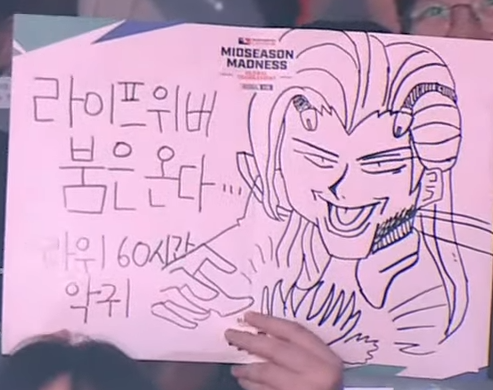 MIDSEASON
MADNESS
라이프위버
붐은 온다...
라위 60시간
악귀